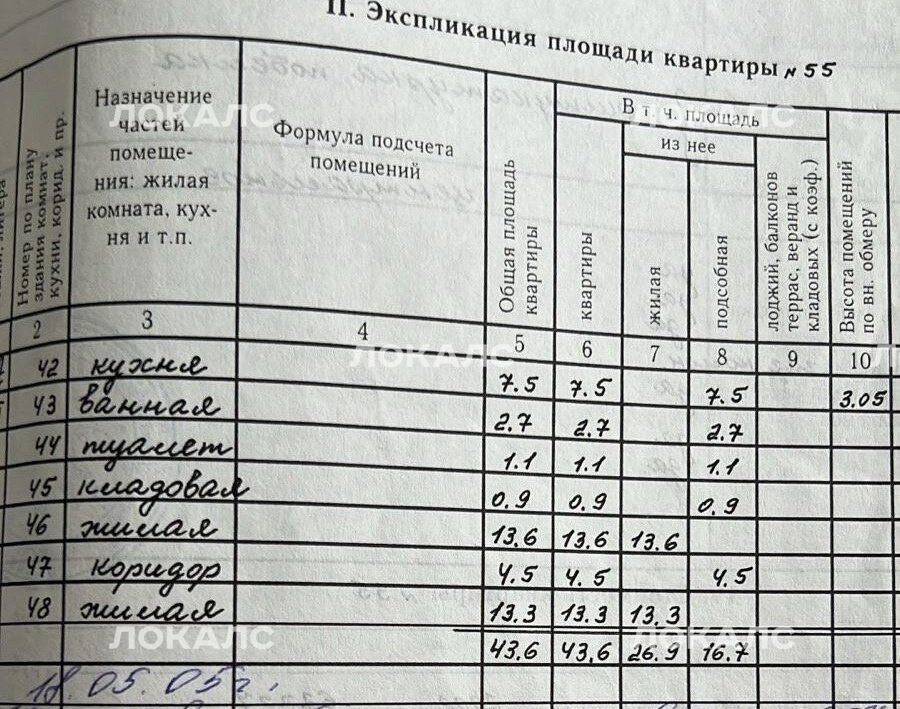 II. Экспликация площади квартиры № 55
Номер по плану здания комнат, кухни, корид. и пр.
Назначение
частей
помеще-
ния: жилая
комната, кух-
ня и т.п.
Формула подсчета
помещений
Общая площадь
квартиры
В т. ч. площадь
из нее
квартиры
жилая
подсобная
лоджий, балконов
террас, веранд и
кладовых (с коэф.)
Высота помещений
по вн. обмеру
2 3 4 5 6 7 8 9 10
42 кухня 7.5 7.5 7.5 3.05
43 ванная 2.7 2.7 2.7
44 туалет 1.1 1.1 1.1
45 кладовая 0.9 0.9 0.9
46 жилая 13.6 13.6 13.6
47 коридор 4.5 4.5 4.5
48 жилая 13.3 13.3 13.3
43.6 43.6 26.9 16.7
18.05.05г.
ЛОКАЛС
ЛОКАЛС
ЛОКАЛС
ЛОКАЛС
ЛОКАЛС